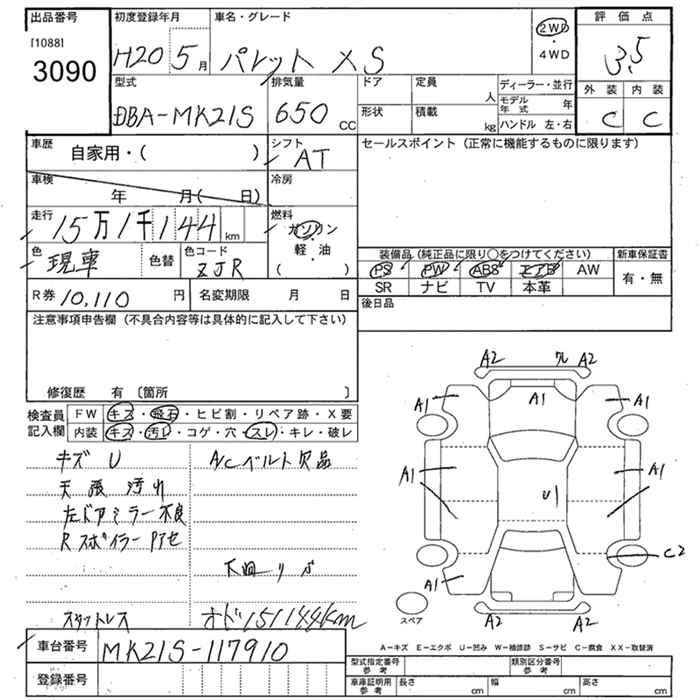 出品番号 初度登録年月 車名・グレード 評価点
[1088] 3090 H20 5月 パレット XS 2WD ・ 4WD 3.5
型式 排気量 ドア 定員 人 ディーラー・並行 外装 内装
DBA-MK21S 650 CC 形状 積載 kg モデル年式 年 ハンドル 左・右 C C
車歴 自家用・( ) シフト AT セールスポイント (正常に機能するものに限ります)
車検 年 月( 日) 冷房
走行 15万1千144km 燃料 ガソリン ・ 軽油 ( )
色 現車 色替 色コード ZJR
装備品(純正品に限り○をつけてください) 新車保証書
PS PW ABS エアB AW 有・無
SR ナビ TV 本革
R券 10,110 円 名変期限 月 日 後日品
注意事項申告欄 (不具合内容等は具体的に記入して下さい)
修復歴 有 〔箇所 〕
検査員記入欄 FW キズ・飛石・ヒビ割・リペア跡・X要
内装 キズ・汚レ・コゲ・穴・スレ・キレ・破レ
キズ U A/Cベルト欠品
天張汚れ
左ドアミラー不良
Rスポイラー アセ
下回リサビ
スタットレス オド151144km
車台番号 MK21S-117910
登録番号
A2 ワレ A2
A1 A1 A1
A1 A1
U1
C2
A1
スペア A2 A2
A-キズ E-エクボ U-凹み W-補修跡 S-サビ C-腐食 XX-取替済
型式指定番号 参考 類別区分番号 参考
車庫証明用 参考 長さ cm 幅 cm 高さ cm